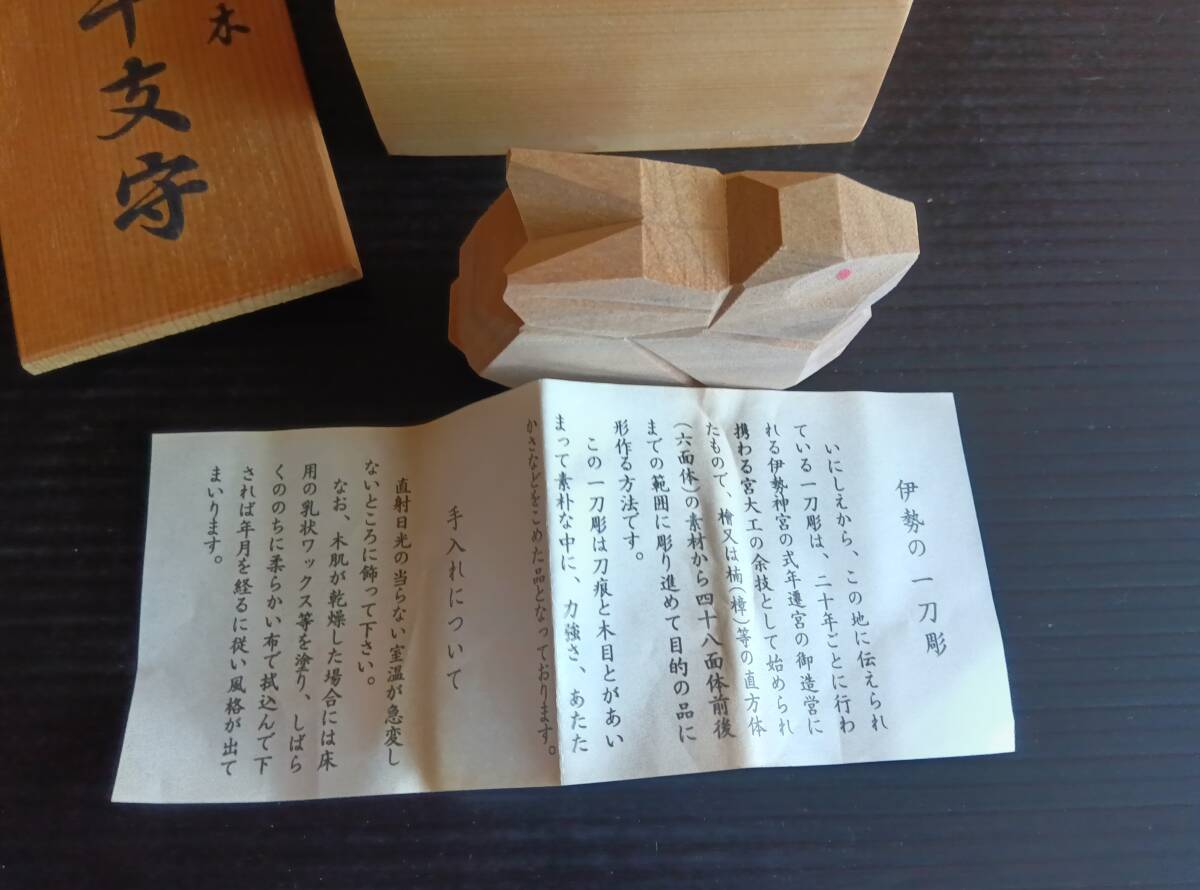 木
干支守
伊勢の一刀彫
いにしえから、この地に伝えられ
ている一刀彫は、二十年ごとに行わ
れる伊勢神宮の式年遷宮の御造営に
携わる宮大工の余技として始められ
たもので、檜又は楠(樟)等の直方体
(六面体)の素材から四十八面体前後
までの範囲に彫り進めて目的の品に
形作る方法です。
この一刀彫は刀痕と木目とがあい
まって素朴な中に、力強さ、あたた
かさなどをこめた品となっております。
手入れについて
直射日光の当らない室温が急変し
ないところに飾って下さい。
なお、木肌が乾燥した場合には床
用の乳状ワックス等を塗り、しばら
くののちに柔らかい布で拭込んで下
されば年月を経るに従い風格が出て
まいります。